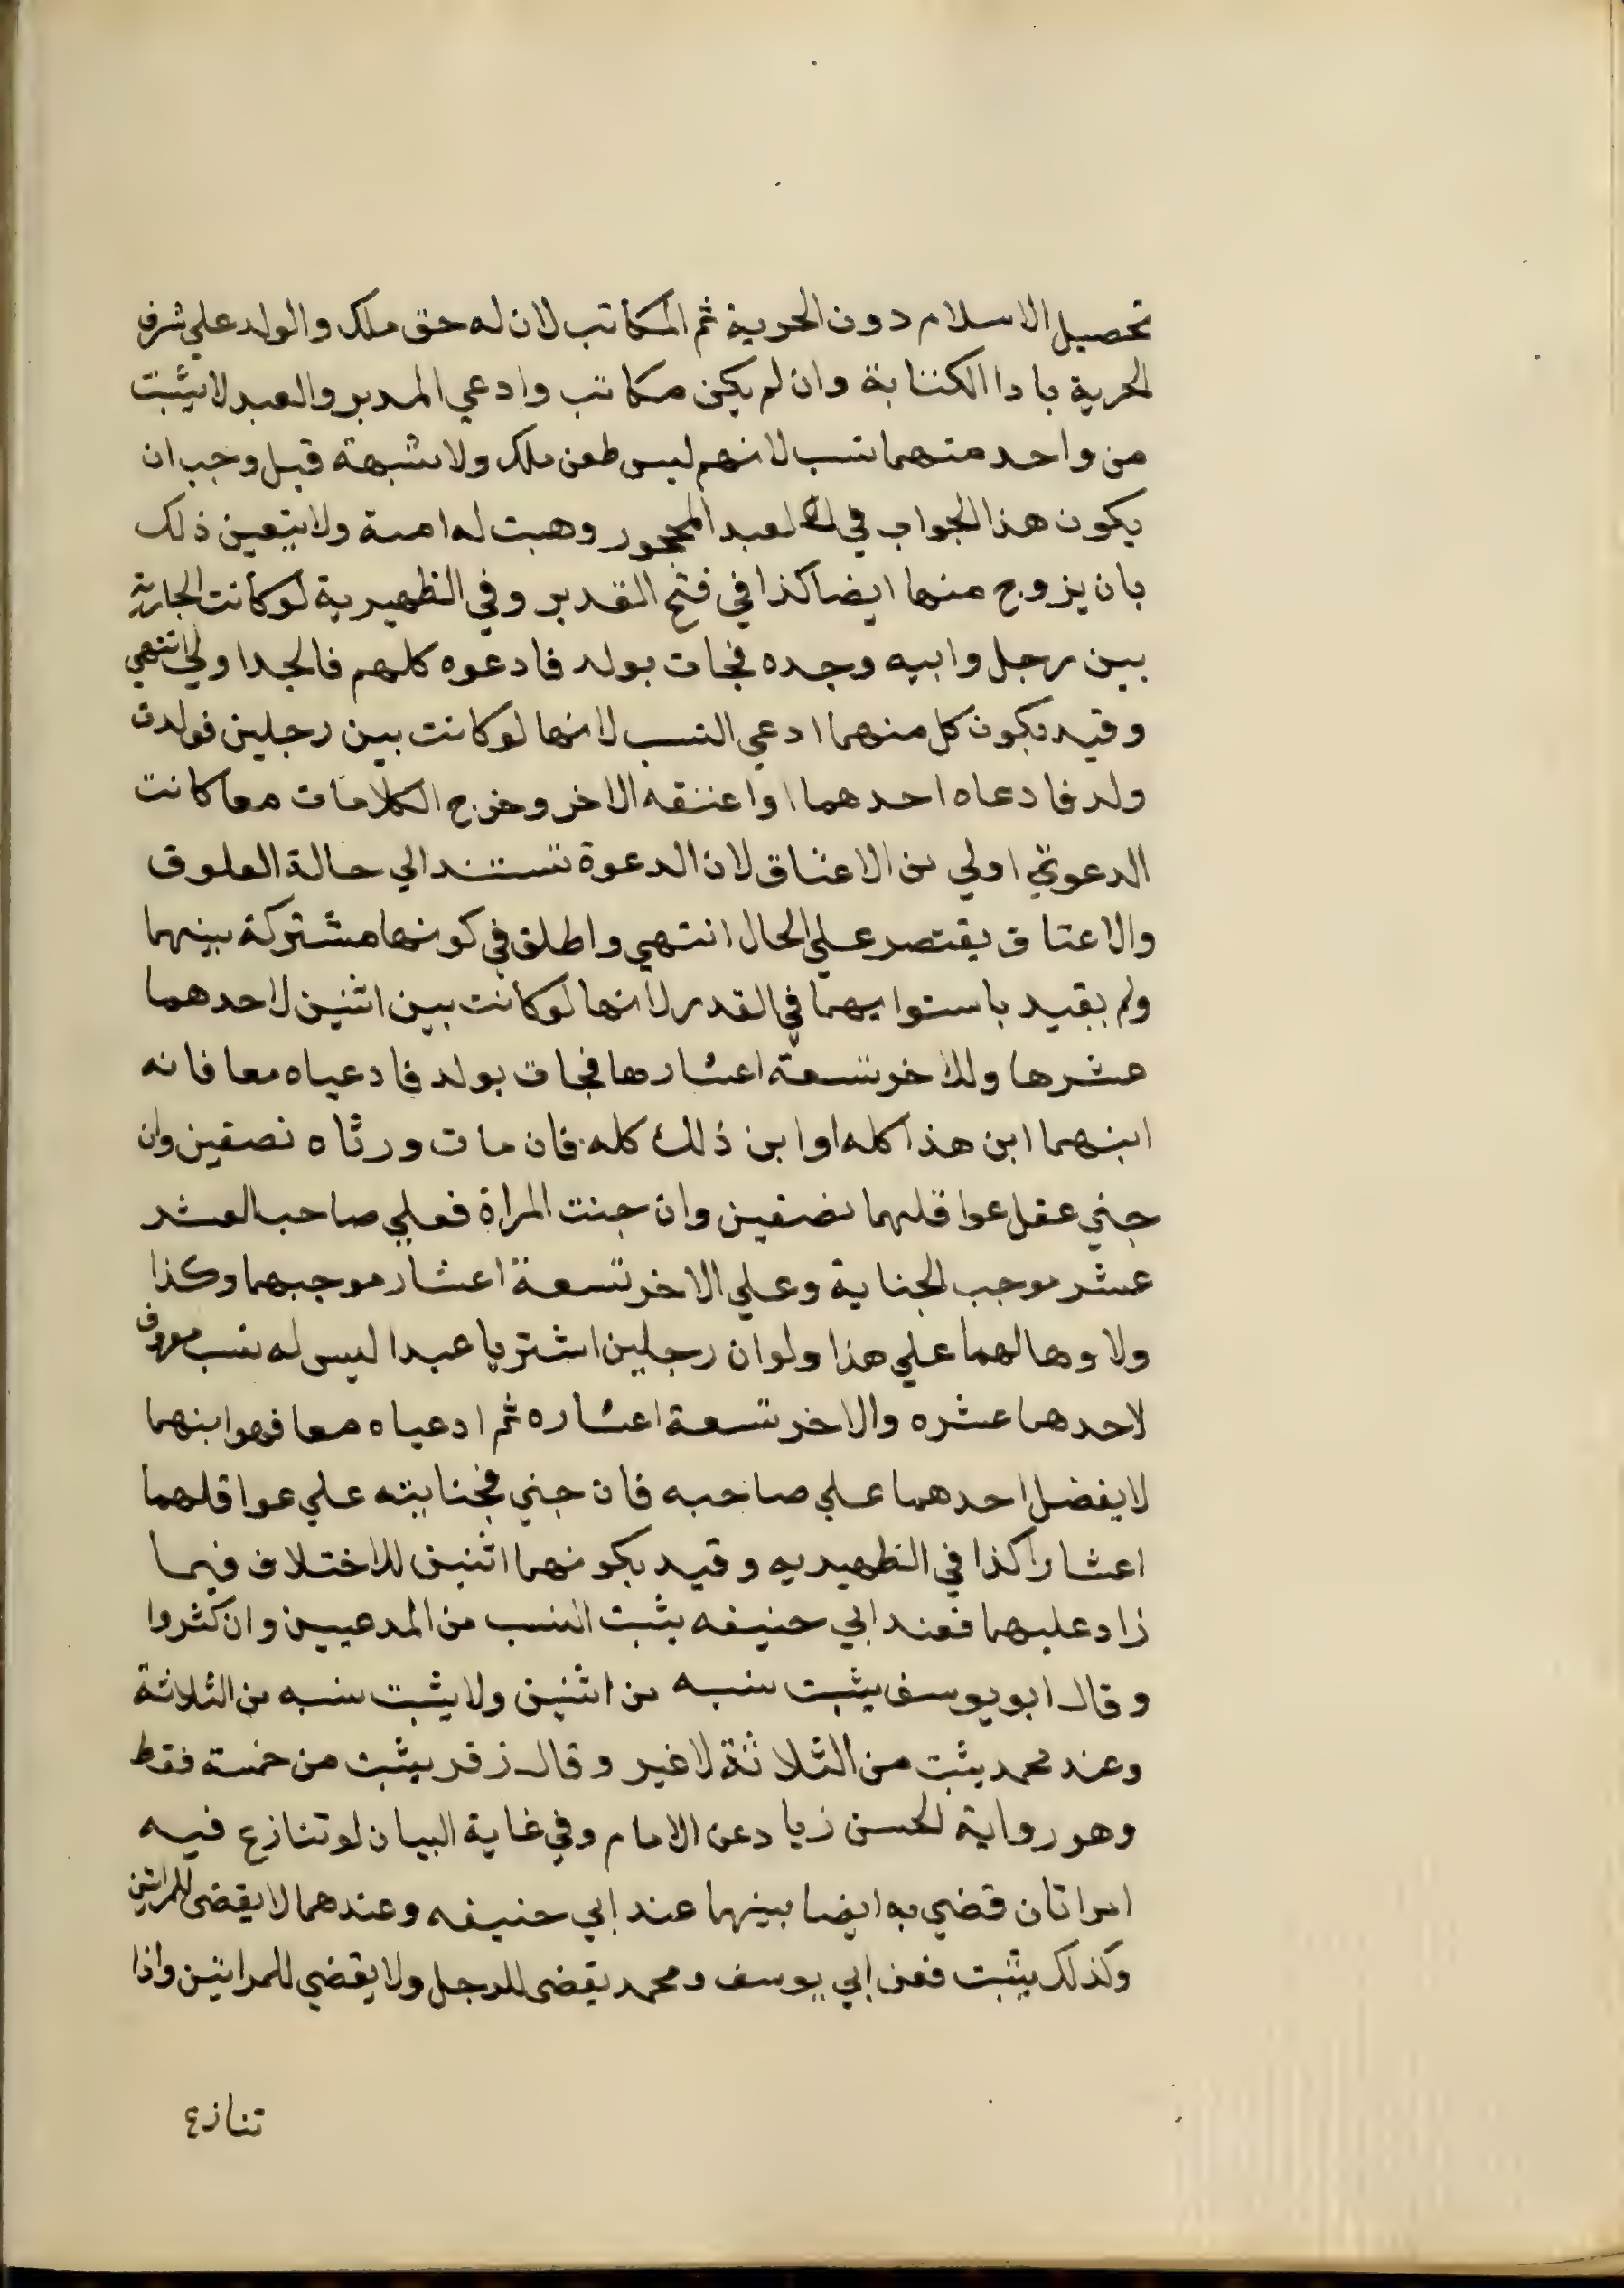 تحصيل الاسلام دون الحرية ثم المكاتب لان له حق ملك والولد علي شرف
الحرية بادا الكتابة وان لم يكن مكاتب وادعي المدبر والعبد لا يثبت
من واحد منهما نسب لانهم ليس طعن ملك ولا شبهة قيل وجب ان
يكون هذا الجواب في العبد المحجور وهبت له امة ولا يتعين ذلك
بان يزوج منها ايضا كذا في فتح القدير وفي الظهيرية لو كانت الجارية
بين رجل وابيه وجده فجات بولد فادعوه كلهم فالجد اولي انتهي
وقيد بكون كل منهما ادعي النسب لانها لو كانت بين رجلين فولدت
ولد فادعاه احدهما او اعتقه الاخر وخرج الكلامات معا كانت
الدعوي اولي من الاعتاق لان الدعوة تستند الي حالة العلوق
والاعتاق يقتصر علي الحال انتهي واطلق في كونها مشتركة بينهما
ولم يقيد باستوايهما في القدر لانها لو كانت بين اثنين لاحدهما
عشرها وللاخر تسعة اعشارها فجات بولد فادعياه معا فانه
ابنهما ابن هذا كله او ابن ذلك كله فان مات ورثاه نصفين وان
جني عقل عواقلهما نصفين وان جنت المراة فعلي صاحب العشر
عشر موجب الجناية وعلي الاخر تسعة اعشار موجبهما وكذا
ولاوها لهما علي هذا ولو ان رجلين اشتريا عبدا ليس له نسب معروف
لاحدهما عشره والاخر تسعة اعشاره ثم ادعياه معا فهو ابنهما
لا يفضل احدهما علي صاحبه فان جني فجنايته علي عواقلهما
اعشارا كذا في الظهيريه وقيد بكونهما اثنين للاختلاف فيما
زاد عليهما فعند ابي حنيفه يثبت النسب من المدعيين وان كثروا
وقال ابو يوسف يثبت نسبه من اثنين ولا يثبت نسبه من الثلاثة
وعند محمد يثبت من الثلاثة لا غير وقال زفر يثبت من خمسة فقط
وهو رواية الحسن زياد عن الامام وفي غاية البيان لو تنازع فيه
امراتان قضي به ايضا بينهما عند ابي حنيفه وعندهما لا يقضى للمراتين
وكذلك يثبت فعن ابي يوسف ومحمد يقضى للرجل ولا يقضي للمراتين واذا
تنازع